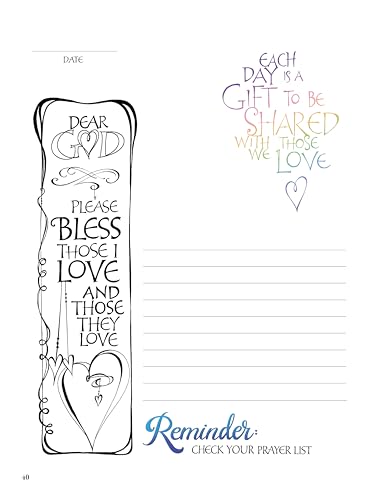 DATE
EACH
DAY IS A
GIFT TO BE
SHARED
WITH THOSE
WE LOVE
DEAR
GOD
PLEASE
BLESS
THOSE I
LOVE
AND
THOSE
THEY
LOVE
Reminder:
CHECK YOUR PRAYER LIST